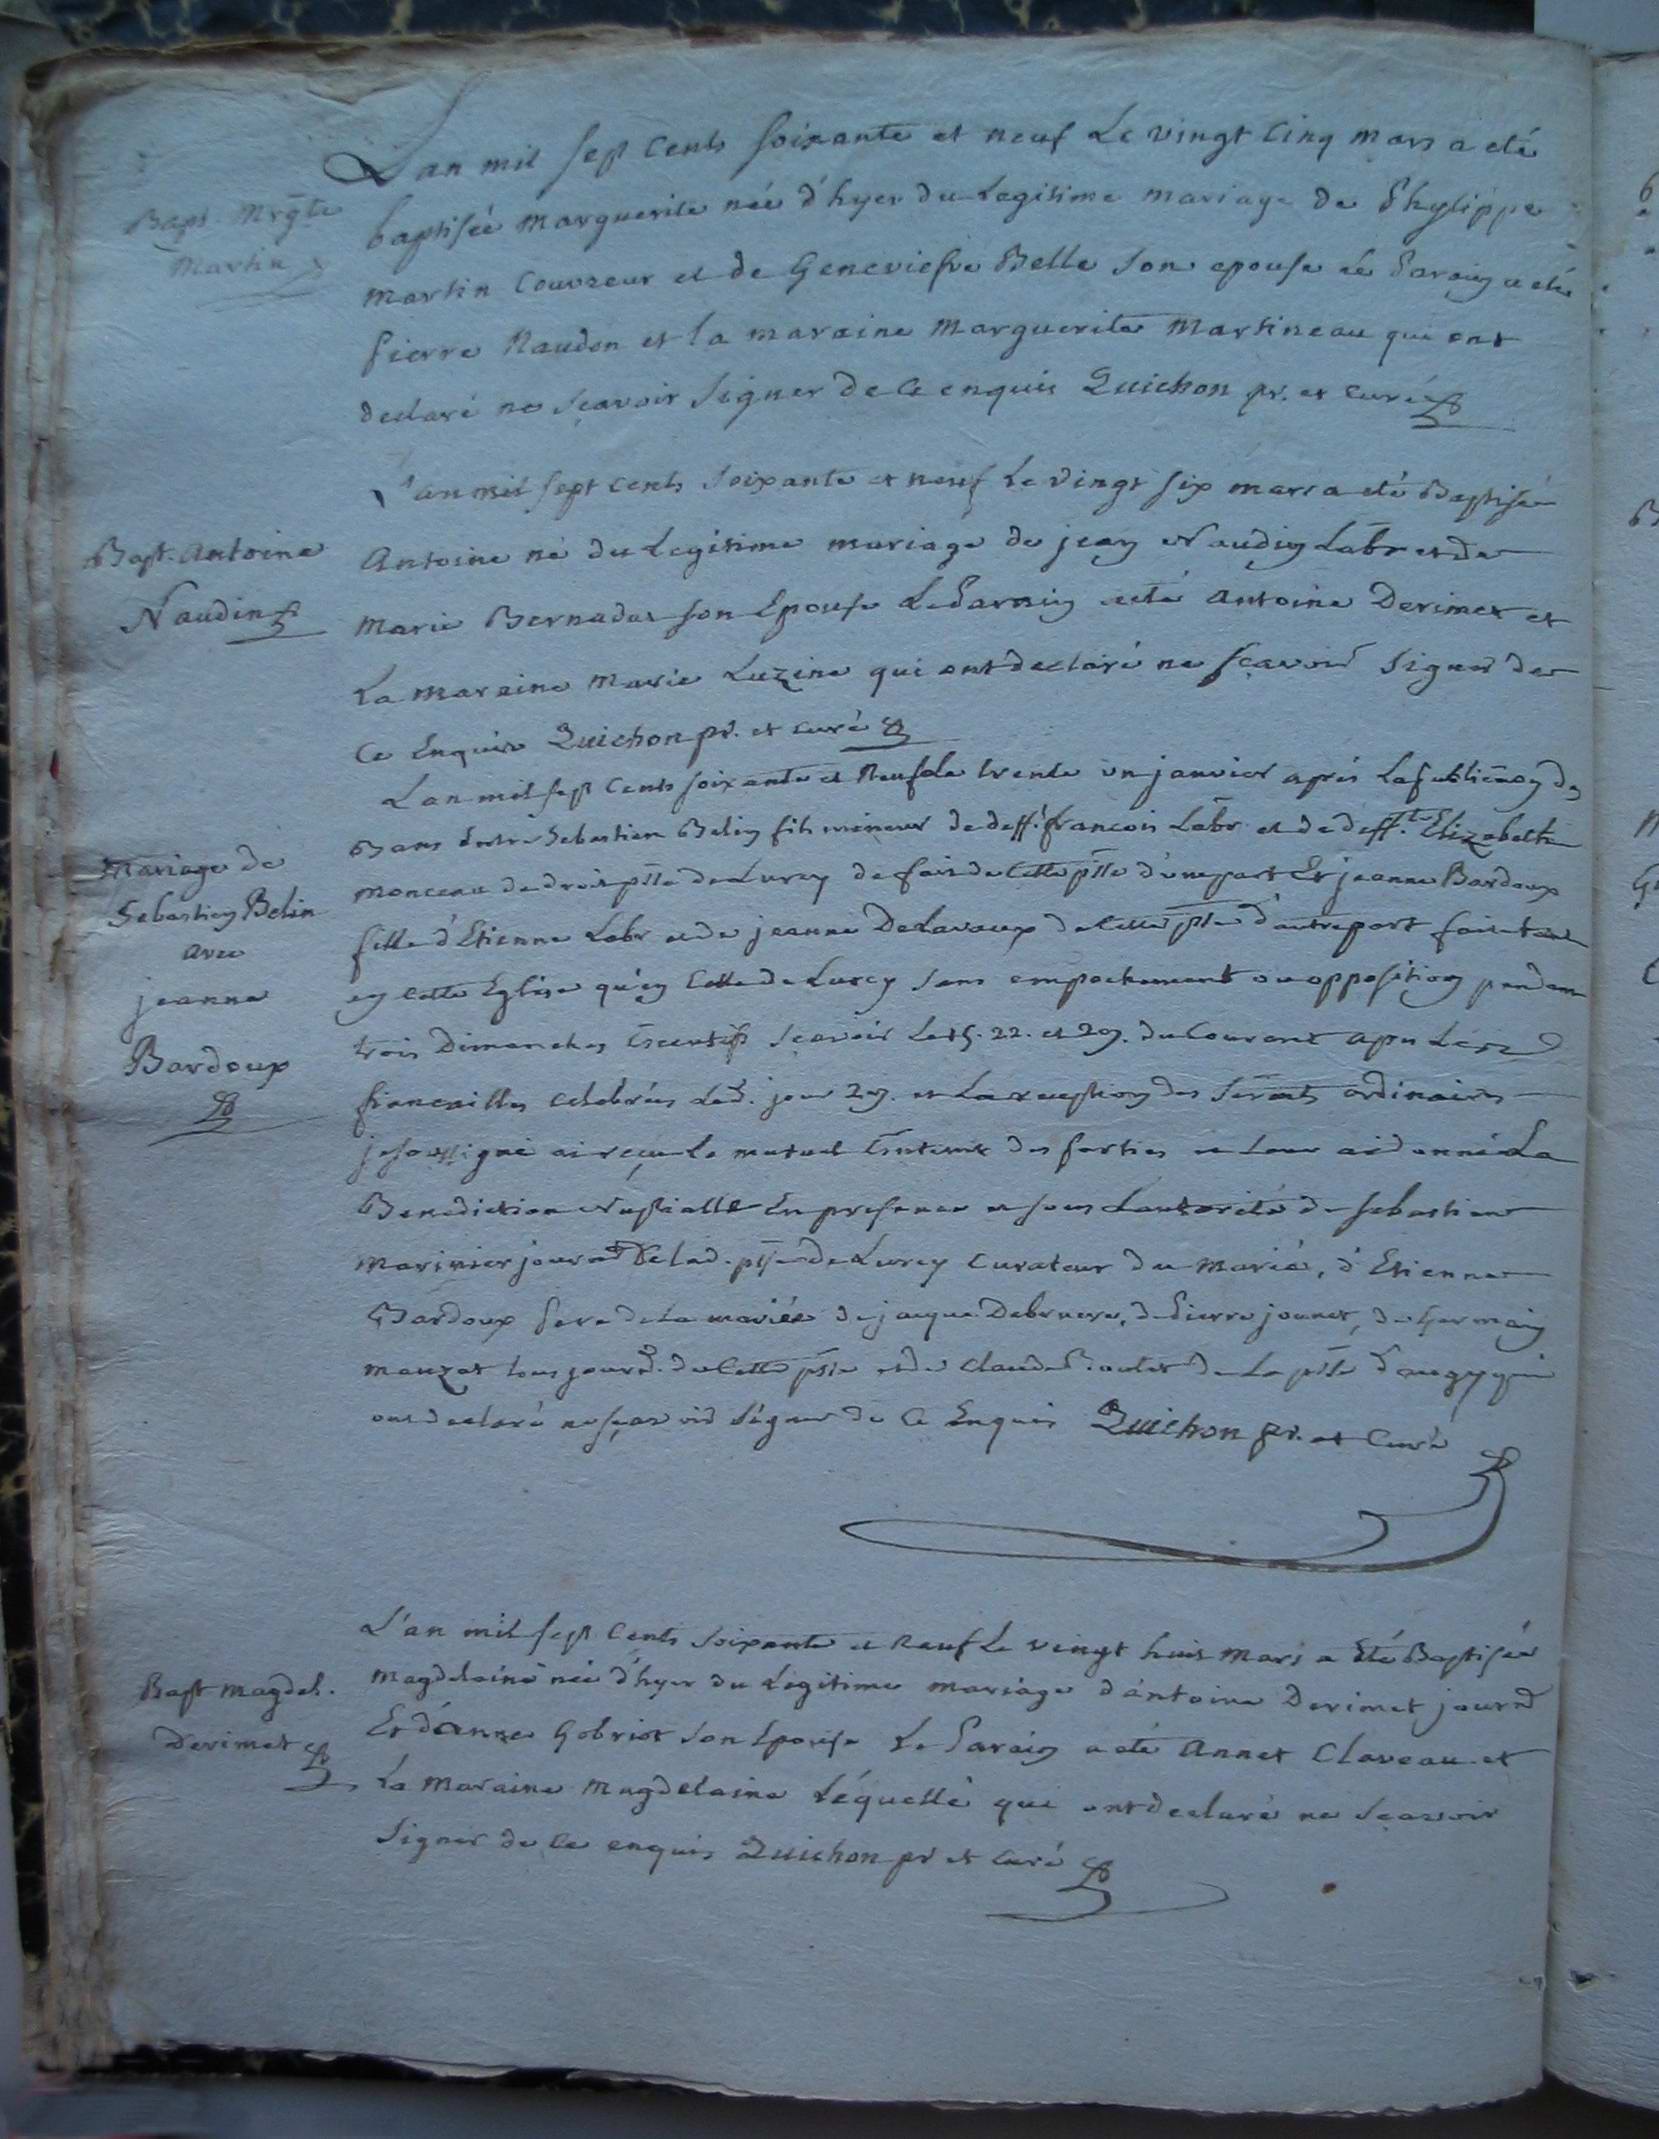 L'an mil sept cents soixante et neuf Le vingt cinq mars a eté
Bapt. Mrgte
Martin
baptisée Marguerite née d'hyer du Legitime mariage de Phylippe
Martin Couvreur et de Geneviefve Belle son epouse Le Parain a eté
Pierre Naudon et la maraine Marguerite Martineau qui ont
declaré ne sçavoir signer de ce enquis Quichon pr. et curé
L'an mil sept cents soixante et neuf Le vingt six mars a eté Baptisé
Bapt. Antoine
Naudin
Antoine né du Legitime mariage de jean Naudin Labr et de
Marie Bernadat son Epouse Le Parain a eté Antoine Derimet et
La maraine Marie Luzine qui ont declaré ne sçavoir signer de
Ce Enquis Quichon pr. et curé
L'an mil sept cents soixante et Neuf le trente un janvier aprés La publicãon des
Mariage de
Sebastien Belin
avec
jeanne
Bardoux
Bans Entre Sebastien Belin fils mineur de deff.t francois Labr et de deff.te Elizabeth
Monceau de droit psse de Lurcy de fait de Cette psse d'une part Et jeanne Bardoux
fille d'Etienne Labr et de jeanne Delavaux de Cette psse d'autre part faite tant
en Cette Eglise qu'en Celle de Lurcy sans empechement ou opposition pendant
trois Dimanches sçavoir Les 15. 22. et 29. du Courant
fiancailles celebrées Led. jour 29. et La reception des Serments ordinaires
je soussigné ai reçu Le mutuel des parties et Leur ai donné La
Benediction Nuptialle En presence et sous L'autorité de Sebastien
Marinier journ de lad. psse de Lurcy Curateur du Marié, d'Etienne
Bardoux Pere de La mariée de jacque Debruere, de Pierre jounet, de Germain
Mauzat tous journ. de Cette psse et de Claude de La psse d'augy qui
ont declaré ne sçavoir signer de Ce Enquis Quichon pr. et Curé
L'an mil sept Cents soixante et Neuf Le vingt huit Mars a Eté Baptisée
Bapt Magdel.
Derimet
Magdelaine née d'hyer du Legitime mariage d'antoine Derimet journ
Et d'anne Gobriot son Epouse Le Parain a eté Annet Claveau et
La Maraine Magdelaine Léquellé qui ont declaré ne sçavoir
signer de ce enquis Quichon pr et curé